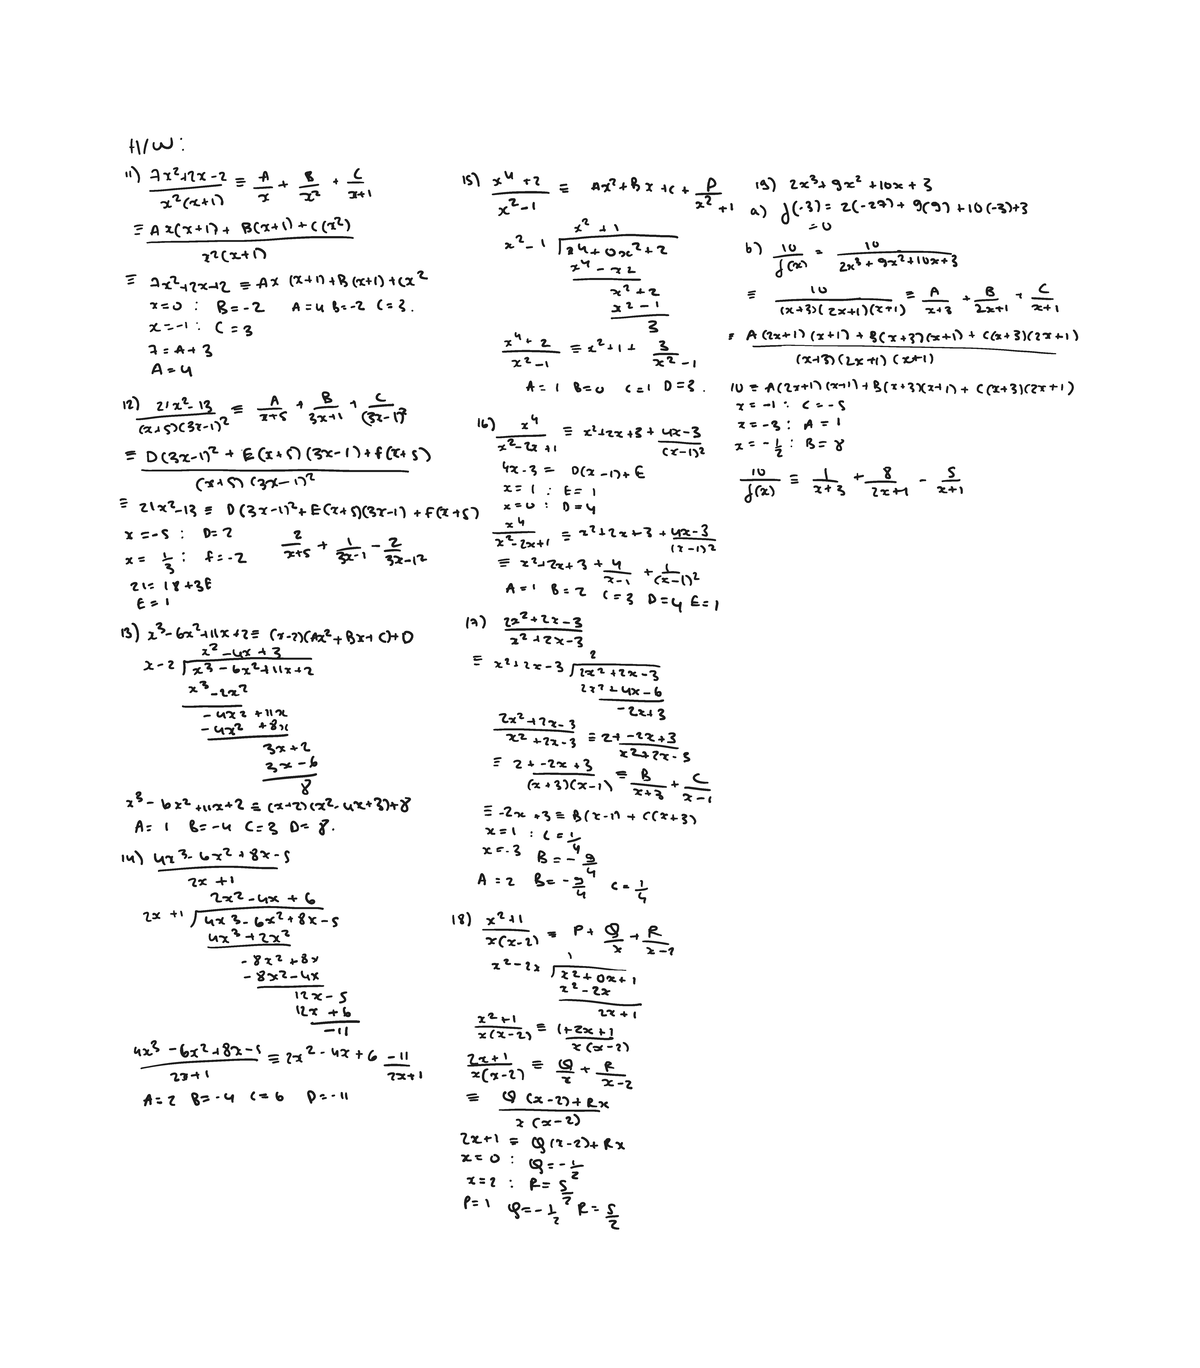 H/W:
11) 7x²+2x-2 / x²(x+1) ≡ A/x + B/x² + C/x+1
≡ Ax(x+1) + B(x+1) + C(x²) / x²(x+1)
≡ 7x²+2x-2 ≡ Ax (x+1) + B(x+1) + Cx²
x=0 : B=-2 A=4 B=-2 C=3.
x=-1 : C=3
7=A+3
A=4
12) 21x²-13 / (x+5)(3x-1)² ≡ A/x+5 + B/3x+1 + C/(3x-1)²
≡ D(3x-1)² + E(x+5)(3x-1) + F(x+5) / (x+5)(3x-1)²
≡ 21x²-13 ≡ D(3x-1)² + E(x+5)(3x-1) + F(x+5)
x=-5 : D=2 2/x+5 + 1/3x-1 - 2/3x-1²
x= 1/3 : F=-2
21= 18+3E
E=1
13) x³-6x²+11x+2 ≡ (x-2)(Ax²+Bx+C)+D
x²-4x+3
x-2 √x³-6x²+11x+2
x³-2x²
-4x²+11x
-4x²+8x
3x+2
3x-6
8
x³-6x²+11x+2 ≡ (x+2)(x²-4x+3)+8
A=1 B=-4 C=3 D=8.
14) 4x³-6x²+8x-5 / 2x+1
2x²-4x+6
2x+1 √4x³-6x²+8x-5
4x³+2x²
-8x²+8x
-8x²-4x
12x-5
12x+6
-11
4x³-6x²+8x-5 / 2x+1 ≡ 2x²-4x+6 -11/2x+1
A=2 B=-4 C=6 D=-11
15) x⁴+2 / x²-1 ≡ Ax²+Bx+C+ D/x²+1
x²+1
x²-1 √x⁴+0x²+2
x⁴-x²
x²+2
x²-1
3
x⁴+2 / x²-1 ≡ x²+1+ 3/x²-1
A=1 B=0 C=1 D=3.
16) x⁴ / x²-2x+1 ≡ x²+2x+3+ 4x-3/(x-1)²
4x-3 = D(x-1)+E
x=1 : E=1
x=0 : D=4
x⁴ / x²-2x+1 ≡ x²+2x+3+ 4x-3/(x-1)²
≡ x²+2x+3+ 4/x-1 + 1/(x-1)²
A=1 B=2 C=3 D=4 E=1
17) 2x²+2x-3 / x²+2x-3
2
≡ x²+2x-3 √2x²+2x-3
2x²+4x-6
-2x+3
2x²+2x-3 / x²+2x-3 ≡ 2+ -2x+3/x²+2x-3
≡ 2+ -2x+3/(x+3)(x-1) ≡ B/x+3 + C/x-1
≡ -2x+3 ≡ B(x-1) + C(x+3)
x=1 : C=1/4
x=-3 B=-9/4
A=2 B=-9/4 C=1/4
18) x²+1 / x(x-2) ≡ P+ Q/x + R/x-2
1
x²-2x √x²+0x+1
x²-2x
2x+1
x²+1 / x(x-2) ≡ 1+2x+1 / x(x-2)
2x+1 / x(x-2) ≡ Q/x + R/x-2
≡ Q(x-2)+Rx / x(x-2)
2x+1 ≡ Q(x-2)+Rx
x=0 : Q=-1/2
x=2 : R=5/2
P=1 Q=-1/2 R=5/2
19) 2x³+9x²+10x+3
a) f(-3) = 2(-27)+9(9)+10(-3)+3
=0
b) 10/f(x) = 10 / 2x³+9x²+10x+3
≡ 10 / (x+3)(2x+1)(x+1) ≡ A/x+3 + B/2x+1 + C/x+1
≡ A(2x+1)(x+1) + B(x+3)(x+1) + C(x+3)(2x+1) / (x+3)(2x+1)(x+1)
10 ≡ A(2x+1)(x+1) + B(x+3)(x+1) + C(x+3)(2x+1)
x=-1 : C=-5
x=-3 : A=1
x=-1/2 : B=8
10/f(x) ≡ 1/x+3 + 8/2x+1 - 5/x+1